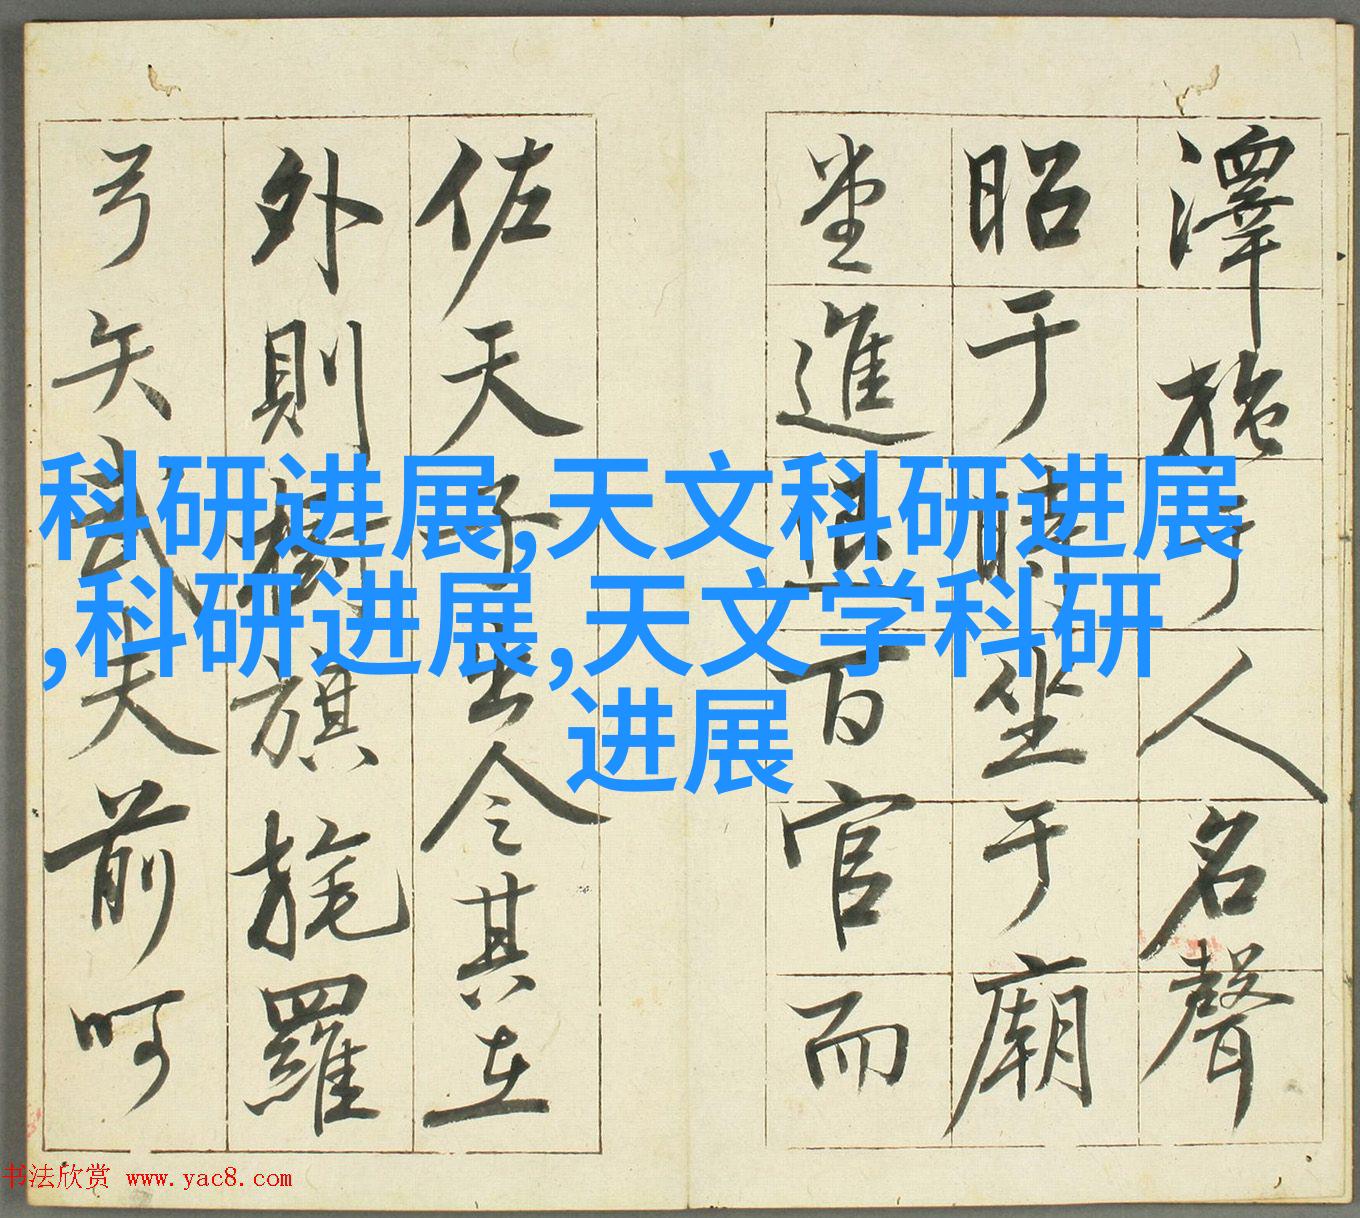 澤施于人名聲
昭于時坐于廟
堂進退百官而
佐天子出令其在
外則樹旗旄羅
弓矢武夫前呵
科研进展,天文科研进展
,科研进展,天文学科研
进展
书法欣赏 www.yac8.com